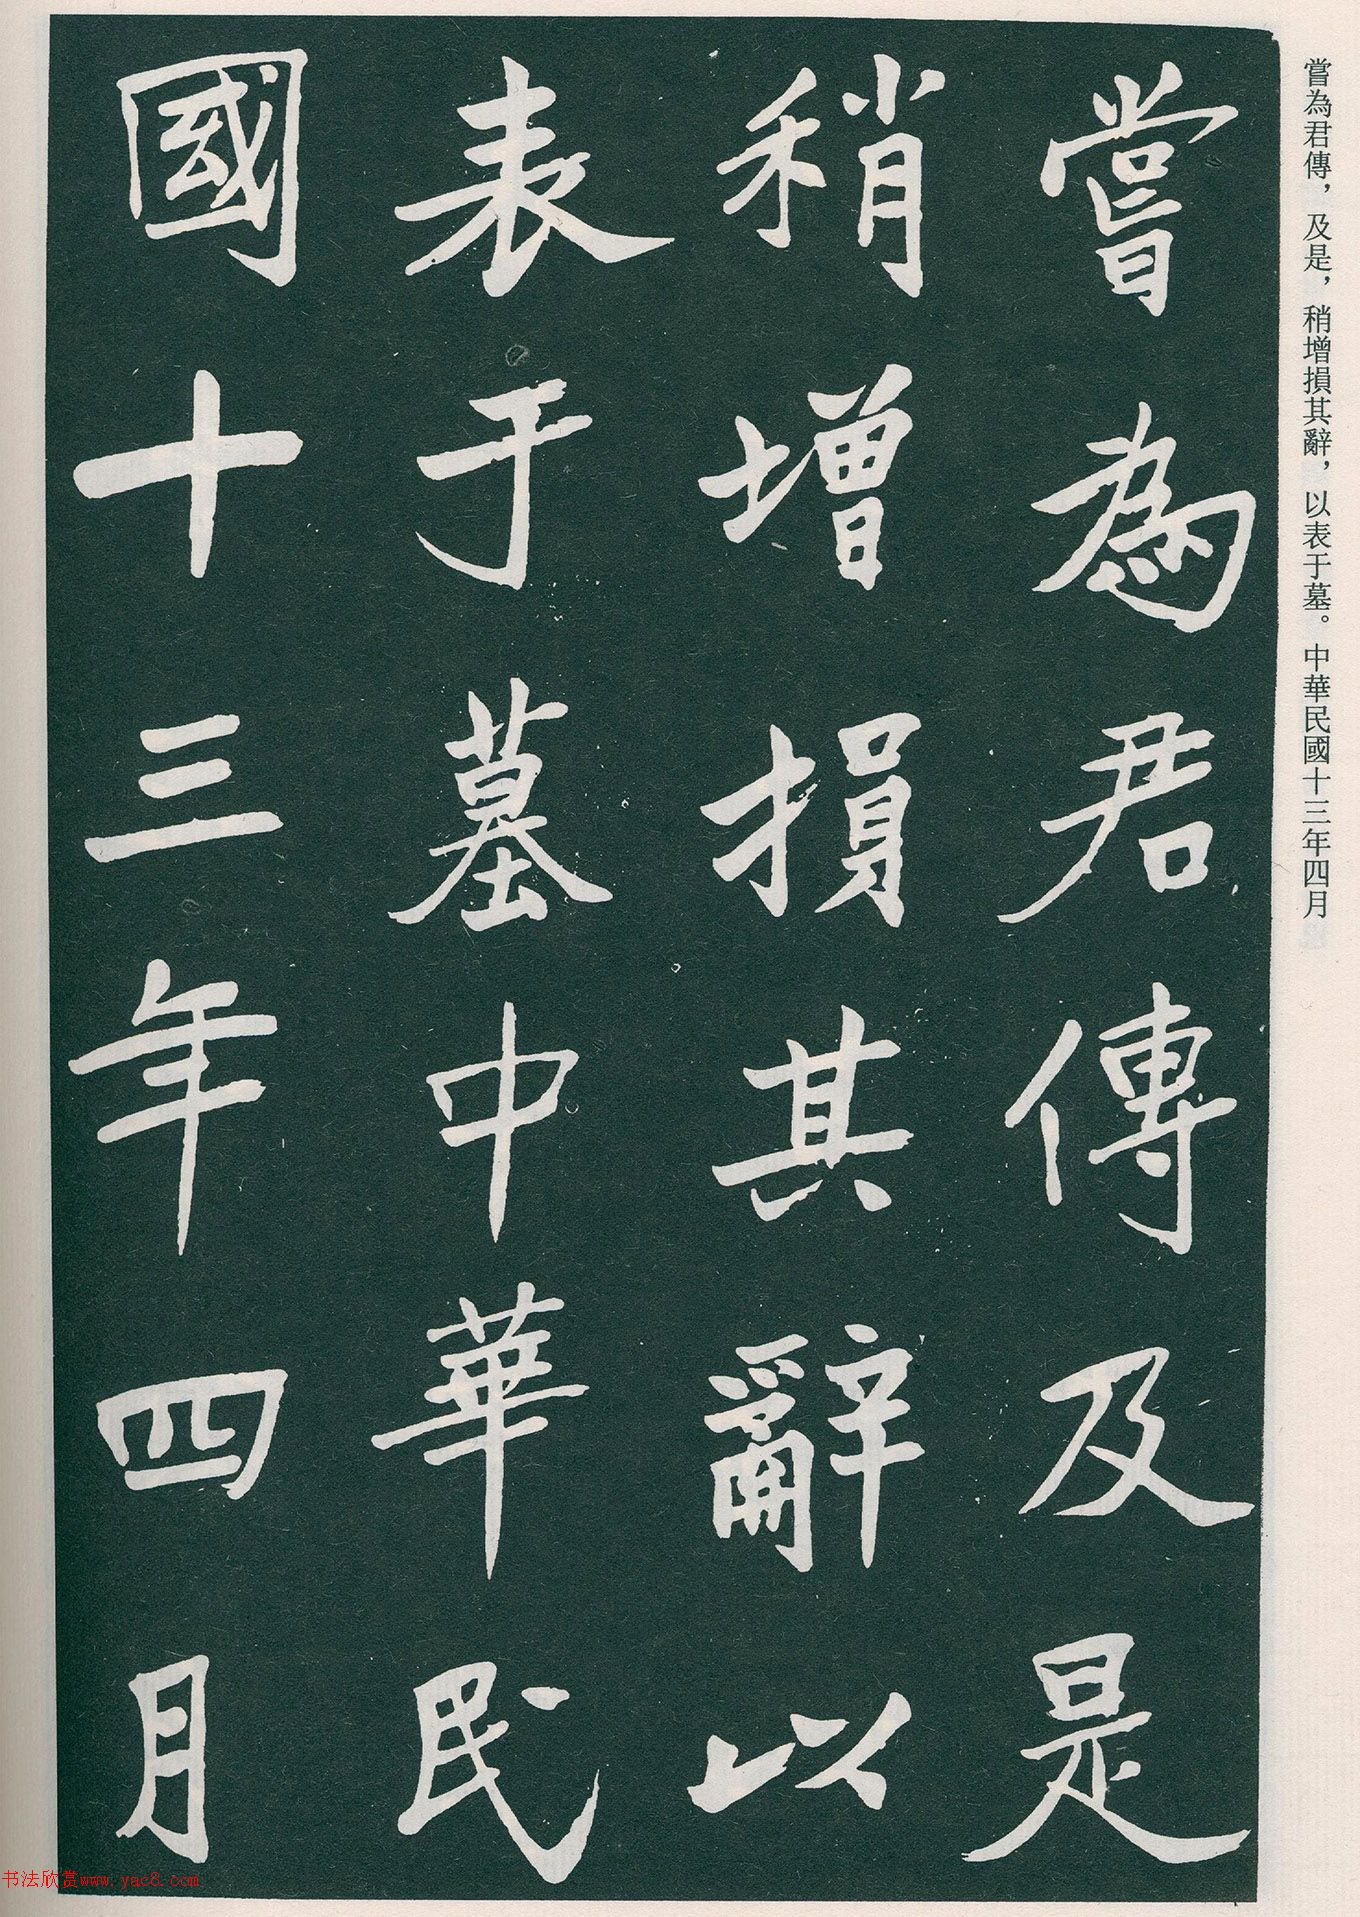 嘗為君傳及是
稍增損其辭以
表于墓中華民
國十三年四月
嘗為君傳，及是，稍增損其辭，以表于墓。中華民國十三年四月
书法欣赏www.yac8.com